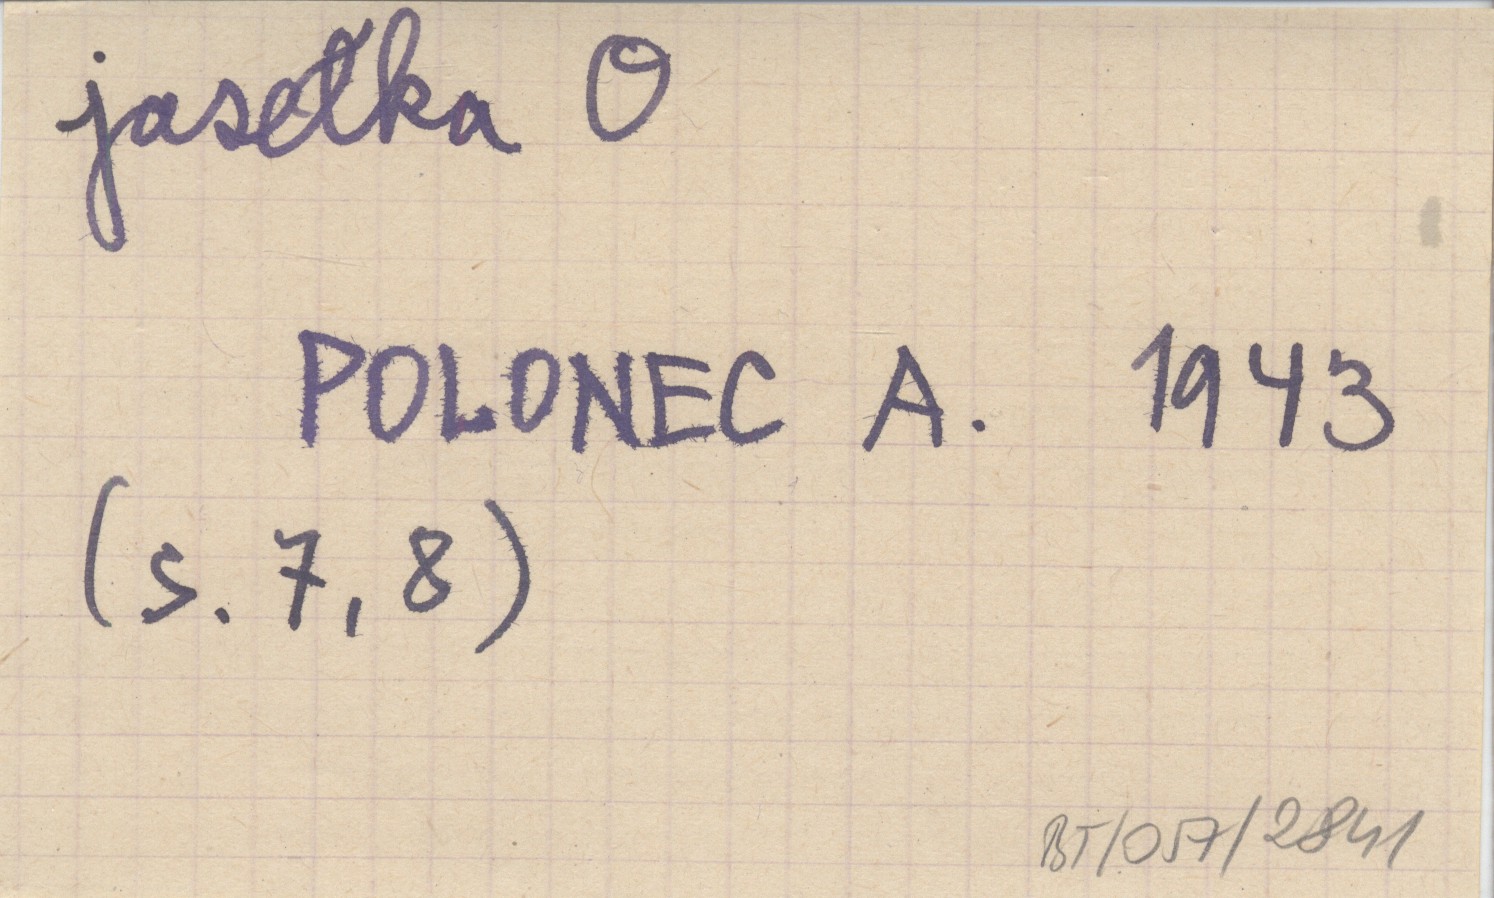 jasełka O
POLONEC A. 1943
(s. 7, 8)
BT/057/2841